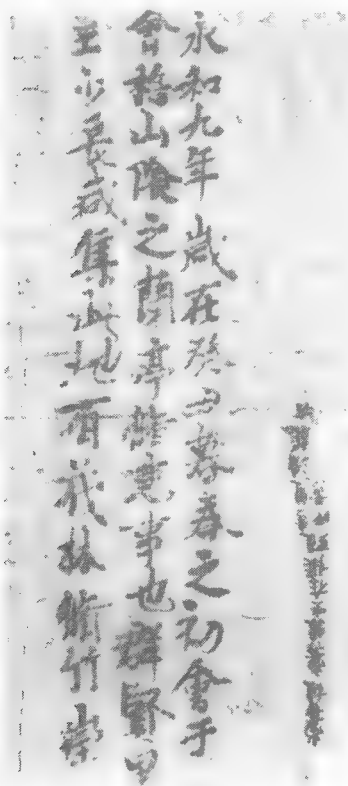 永和九年歲在癸丑暮春之初會于
會稽山陰之蘭亭脩禊事也群賢畢
至少長咸集此地有茂林脩竹崇